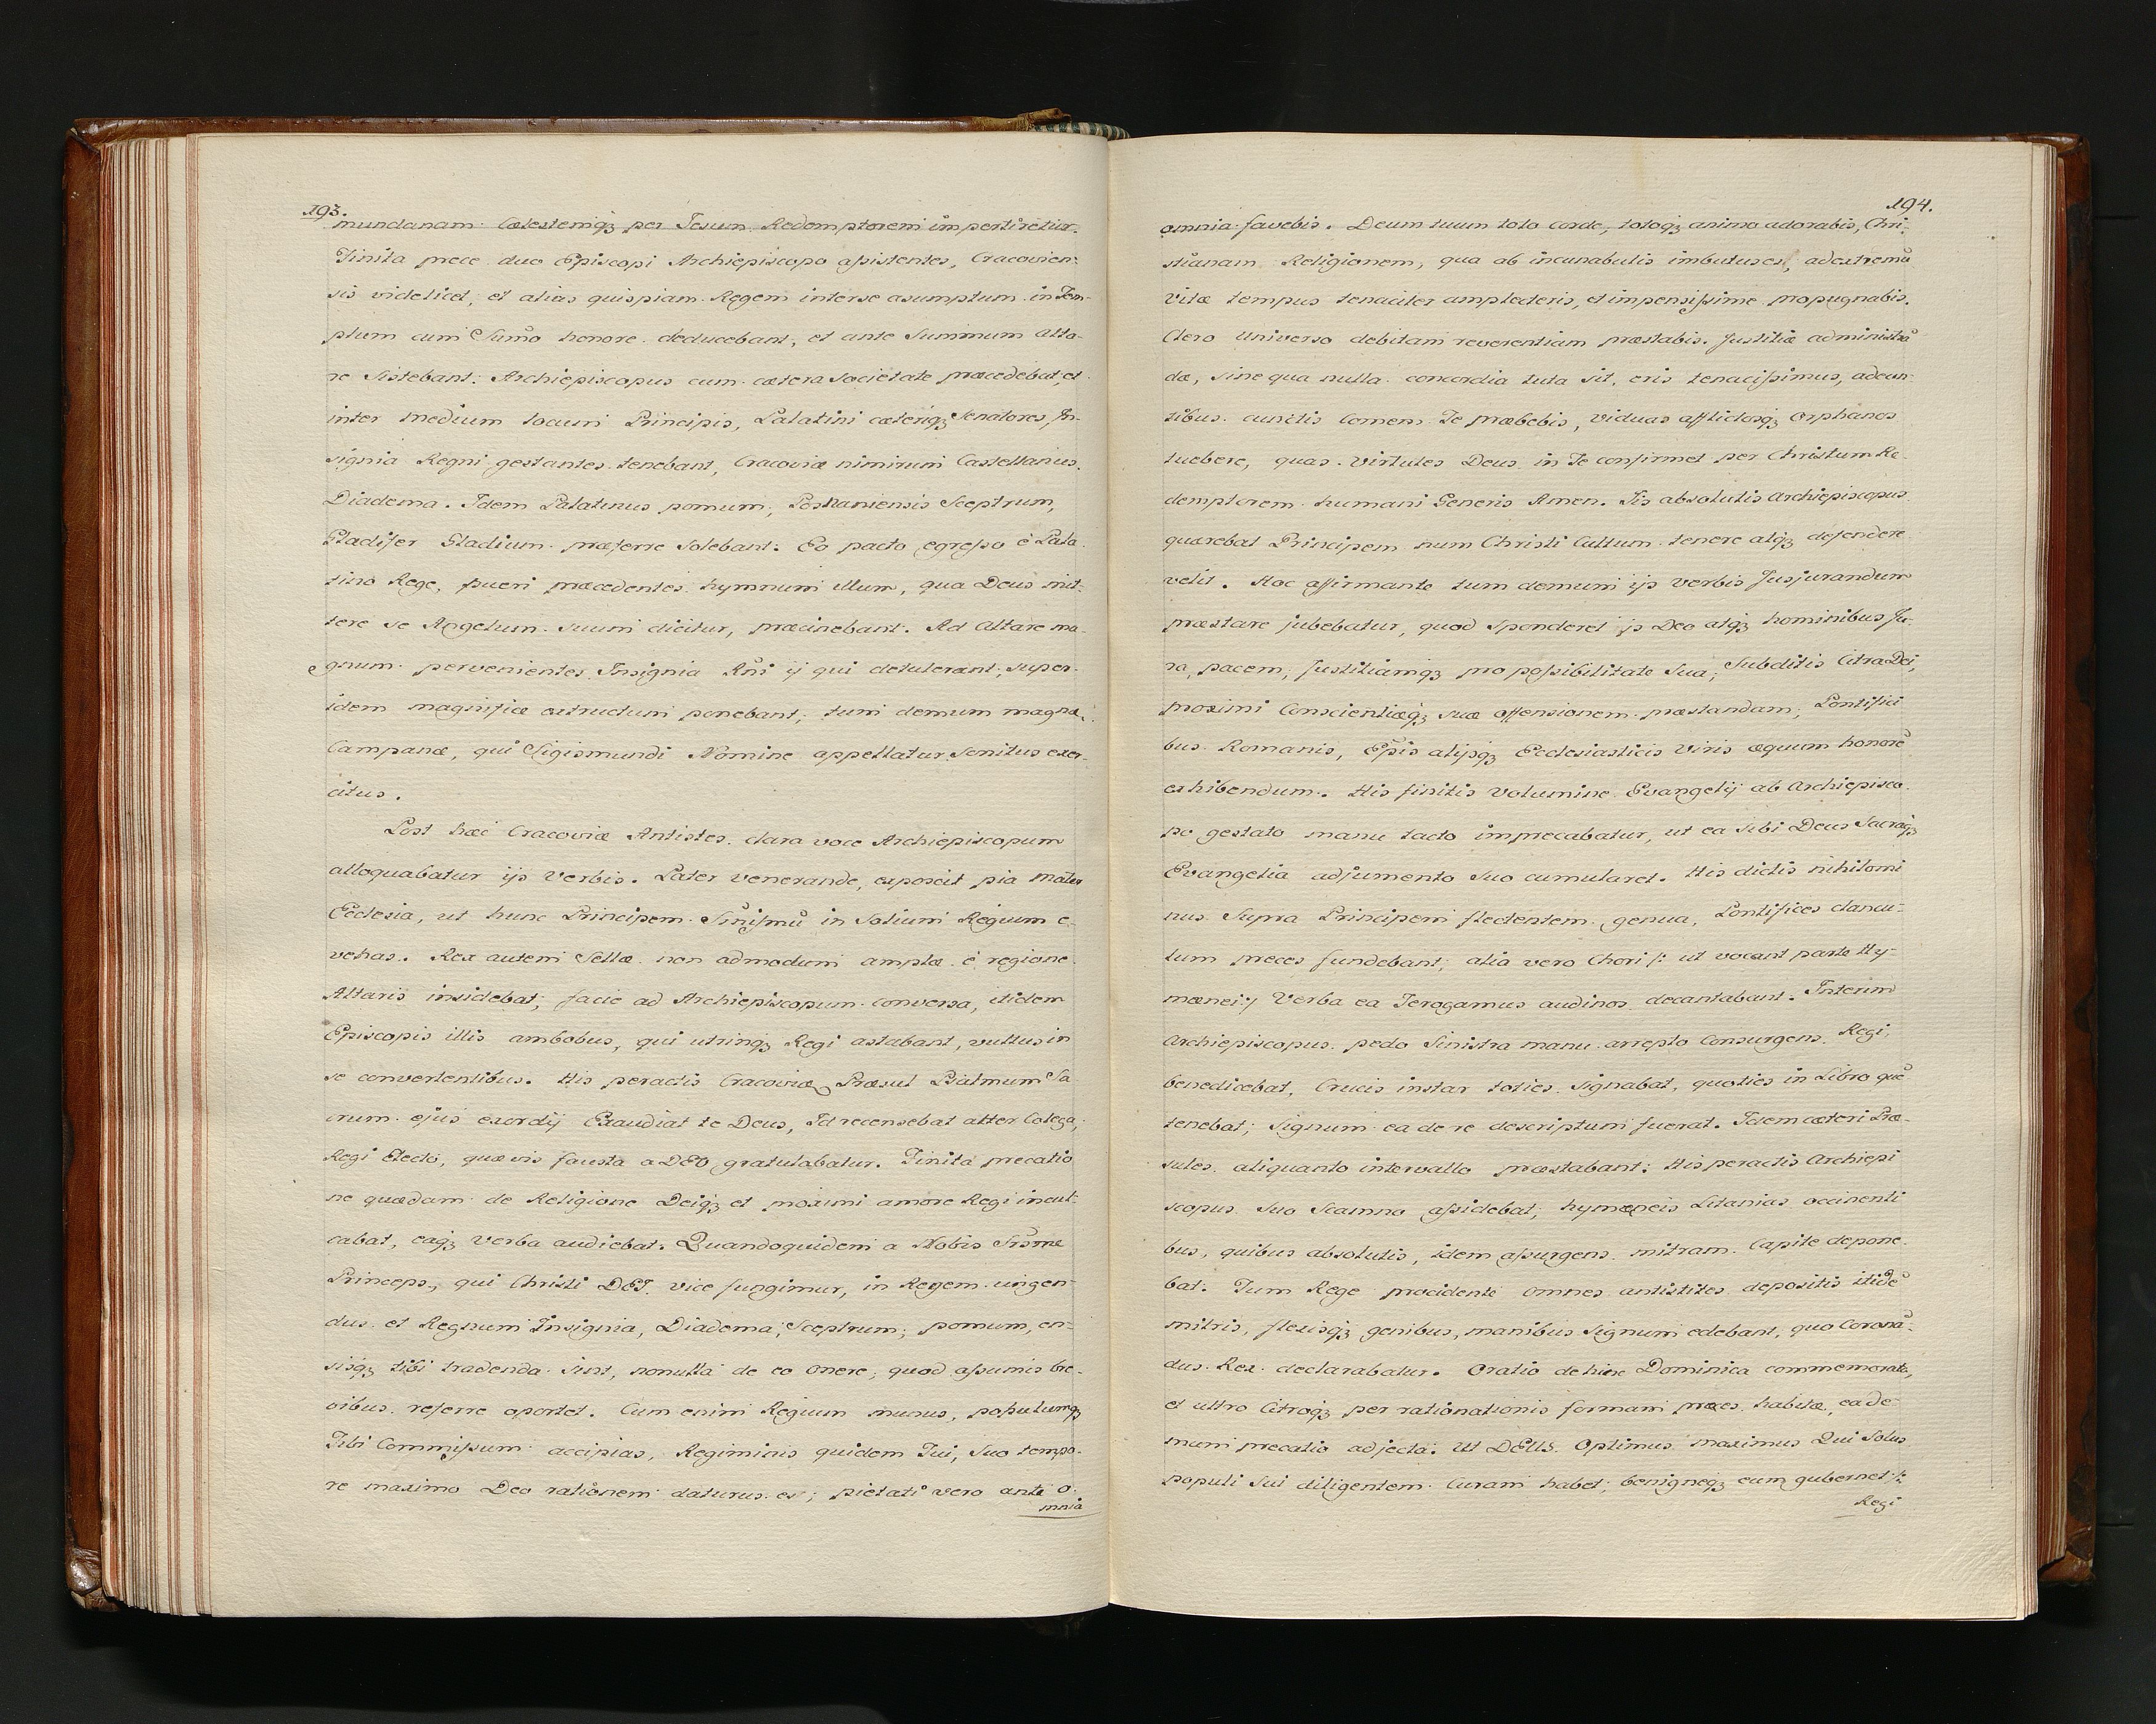 193.
mundanam Cælestemq₃ per Jesum Redemptorem impertiretur.
Finita prece duo Episcopi Archiepiscopo assistentes, Cracovien-
sis videlicet, et alias quispiam Regem interse asumptum in Tem-
plum cum Sum̃o honore deducebant, et ante Summum Alta-
re Sistebant: Archiepiscopus cum cætera Societate præcedebat, et
inter medium locum Principis, Palatini cæteriq₃ Senatores In-
signia Regni gestantes tenebant, Cracoviæ nimirum Castellanus
Diadema. Idem Palatinus pomum, Posnaniensis Sceptrum,
Gladifer Gladium præferre Solebant: Eo pacto egresso è Pala
tino Rege, pueri præcedentes hymnum illum, qua Deus mit-
tere se Angelum suum dicitur, præcinebant. Ad Altare ma-
gnum pervenientes Insignia Rñi ij qui detulerant, super
idem magnificæ extructum ponebant, tum demum magnæ
Campanæ, qui Sigismundi Nomine appellatur Sonitus exer-
citus.
Post hæc Cracoviæ Antistes clara voce Archiepiscopum
alloquabatur ijs Verbis. Pater venerande, exposcit pia mater
Ecclesia, ut hunc Principem Sr̃nissmũ in Solium Regium e-
vehas. Rex autem Sellæ non admodum amplæ è regione
Altaris insidebat, facie ad Archiepiscopum conversa, itidem
Episcopis illis ambobus, qui utrinq₃ Regi astabant, vultus in
se convertentibus. His peractis Cracoviæ Præsul Psalmum Sa
crum ejus exordij Exaudiat te Deus, Id recensebat alter Colega,
Regi Electo, quævis fausta a DEO gratulabatur. Finita precatio
ne quædam de Religione Deiq₃ et proximi amore Regi incul-
cabat, eaq₃ verba audiebat. Quandoquidem a Nobis Sr̃sme
Princeps, qui Christi DEI vice fungimur, in Regem ungen-
dus et Regnum Insignia, Diadema, Sceptrum, pomum, en-
sisq₃ tibi tradenda sint, nonulla de eo onere, quod assumis bre-
vibus referre oportet. Cum enim Regium munus, populumq₃
Tibi Commissum accipias, Regiminis quidem Tui, Suo tempo-
re maximo Deo rationem daturus es; pietati vero ante o-
mnia
194.
omnia favebis. Deum tuum toto corde, totoq₃ animo adorabis, Chri-
stianam Religionem, qua ab incunabulis imbutus es, ad extremũ
vitæ tempus tenaciter amplecteris, et impensissime propugnabis.
Clero Universo debitam reverentiam præstabis. Justitiæ administrã
dæ, sine qua nulla concordia tuta sit, eris tenacissimus, adeun-
tibus cunctis Comem Te præbebis, viduas afflictosq₃ Orphanos
tuebere, quas Virtutes Deus in Te confirmet per Christum Re
demptorem humani Generis Amen. Iis absolutis Archiepiscopus
quærebat Principem num Christi Cultum tenere atq₃ defendere
velit. Hoc affirmante tum demum ijs verbis Jusjurandum
præstare jubebatur, quod sponderet is Deo atq₃ hominibus Ju-
ra, pacem, Justitiamq₃ pro possibilitate Sua, Subditis Citra Dei,
proximi Conscientiæq₃ suæ offensionem præstandam, Pontifici
bus Romanis, Ep̃is alijsq₃ Ecclesiasticis viris æquum honorẽ
exhibendum. His finitis Volumine Evangelij ab Archiepisco
po gestato manu tacto imprecabatur, ut ea sibi Deus Sacraq₃
Evangelia adjumento Suo cumularet. His dictis nihilomi
nus Supra Principem flectentem genua, Pontifices clancu-
lum preces fundebant, alia vero Chori /: ut vocant parte Hy-
mænei :/ Verba ea Terogamus audinos decantabant. Interim
Archiepiscopus pedo Sinistra manu arrepto Consurgens Regi
benedicebat, Crucis instar toties Signabat, quoties in Libro quẽ
tenebat, Signum ea de re descriptum fuerat. Idem cæteri Præ-
sules aliquanto intervallo præstabant: His peractis Archiepi
scopus Suo Scamno assidebat, hymæneis Litanias occinenti
bus, quibus absolutis, idem assurgens mitram Capite depone
bat: Tum Rege procidente omnes antistites depositis itidẽ
mitris, flexisq₃ genibus, manibus Signum edebant, quo Coronã-
dus Rex declarabatur. Oratio dehinc Dominica commemorata,
et ultro Citroq₃ per rationationis formam preces habitæ, eade-
mum precatio adjecta: Ut DEUS Optimus maximus Qui Solus
populi Sui diligentem Curam habet, benigneq₃ eum gubernet /:
Regi